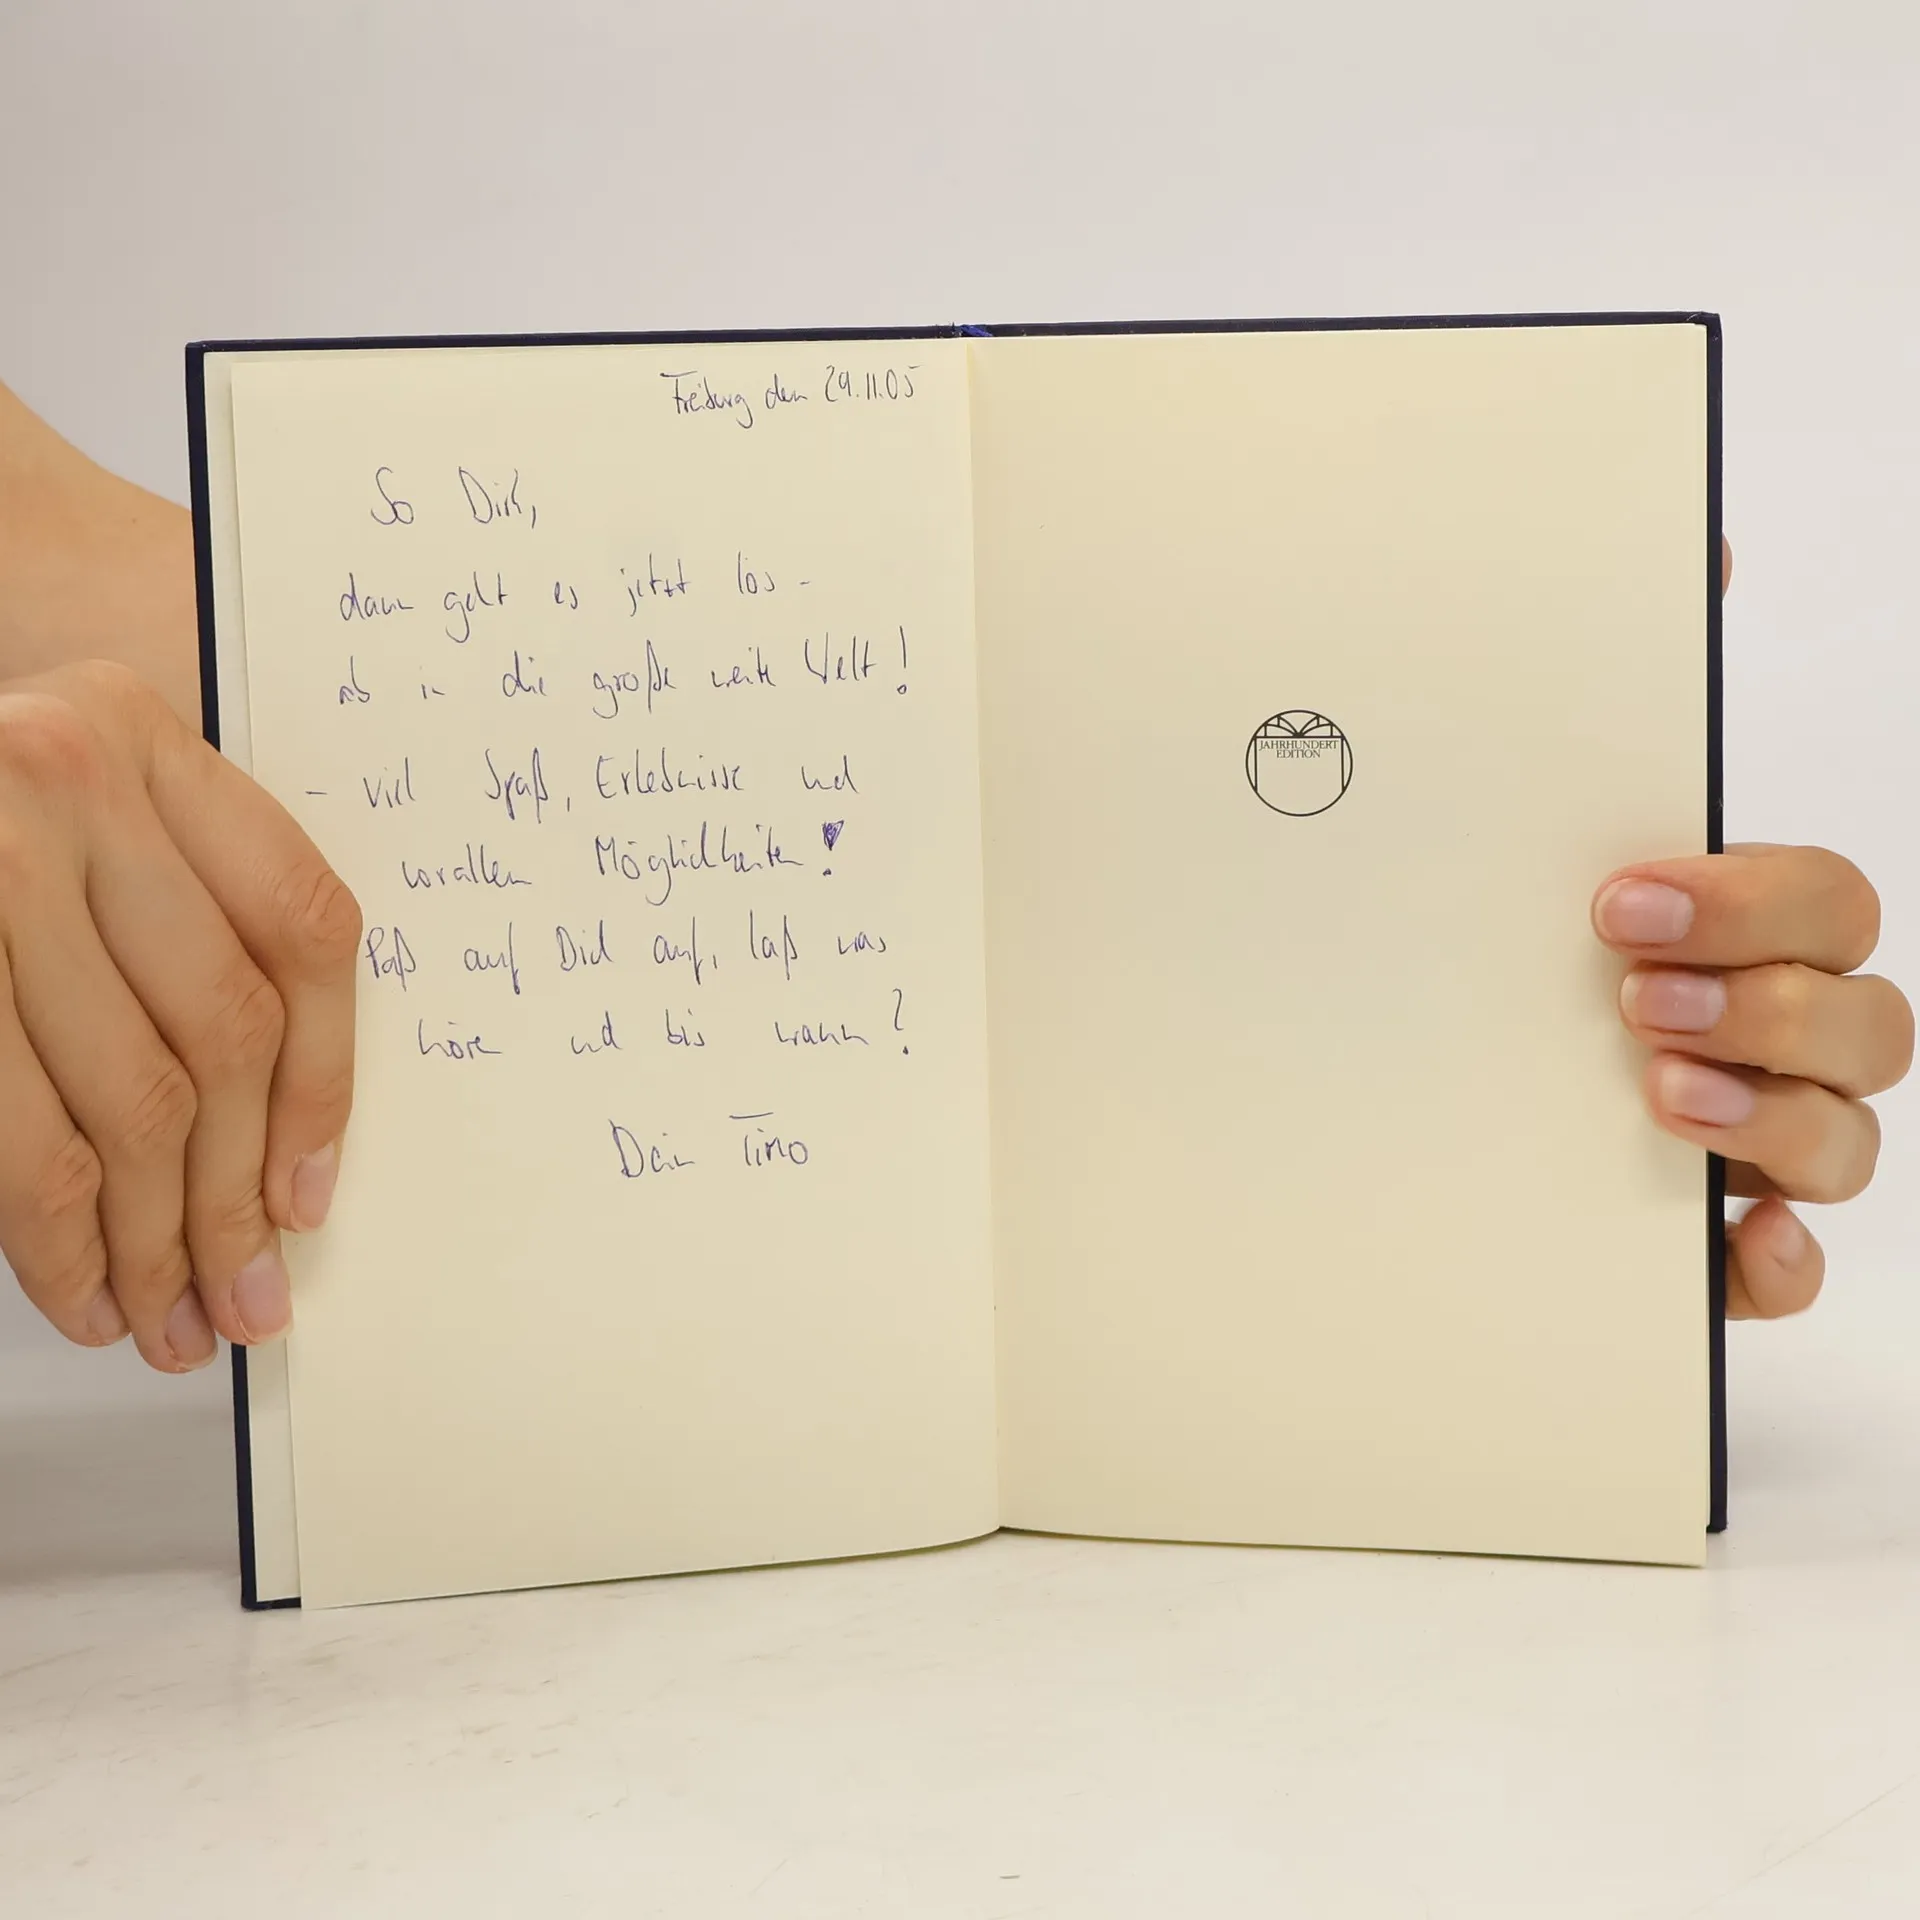 Freiburg den 29.11.05
So Dirk,
dann geht es jetzt los -
ab in die große weite Welt!
- viel Spaß, Erlebnisse und
vorallem Möglichkeiten!
Paß auf Dich auf, laß was
hören und bis wann?
Dein Timo
JAHRHUNDERT
EDITION